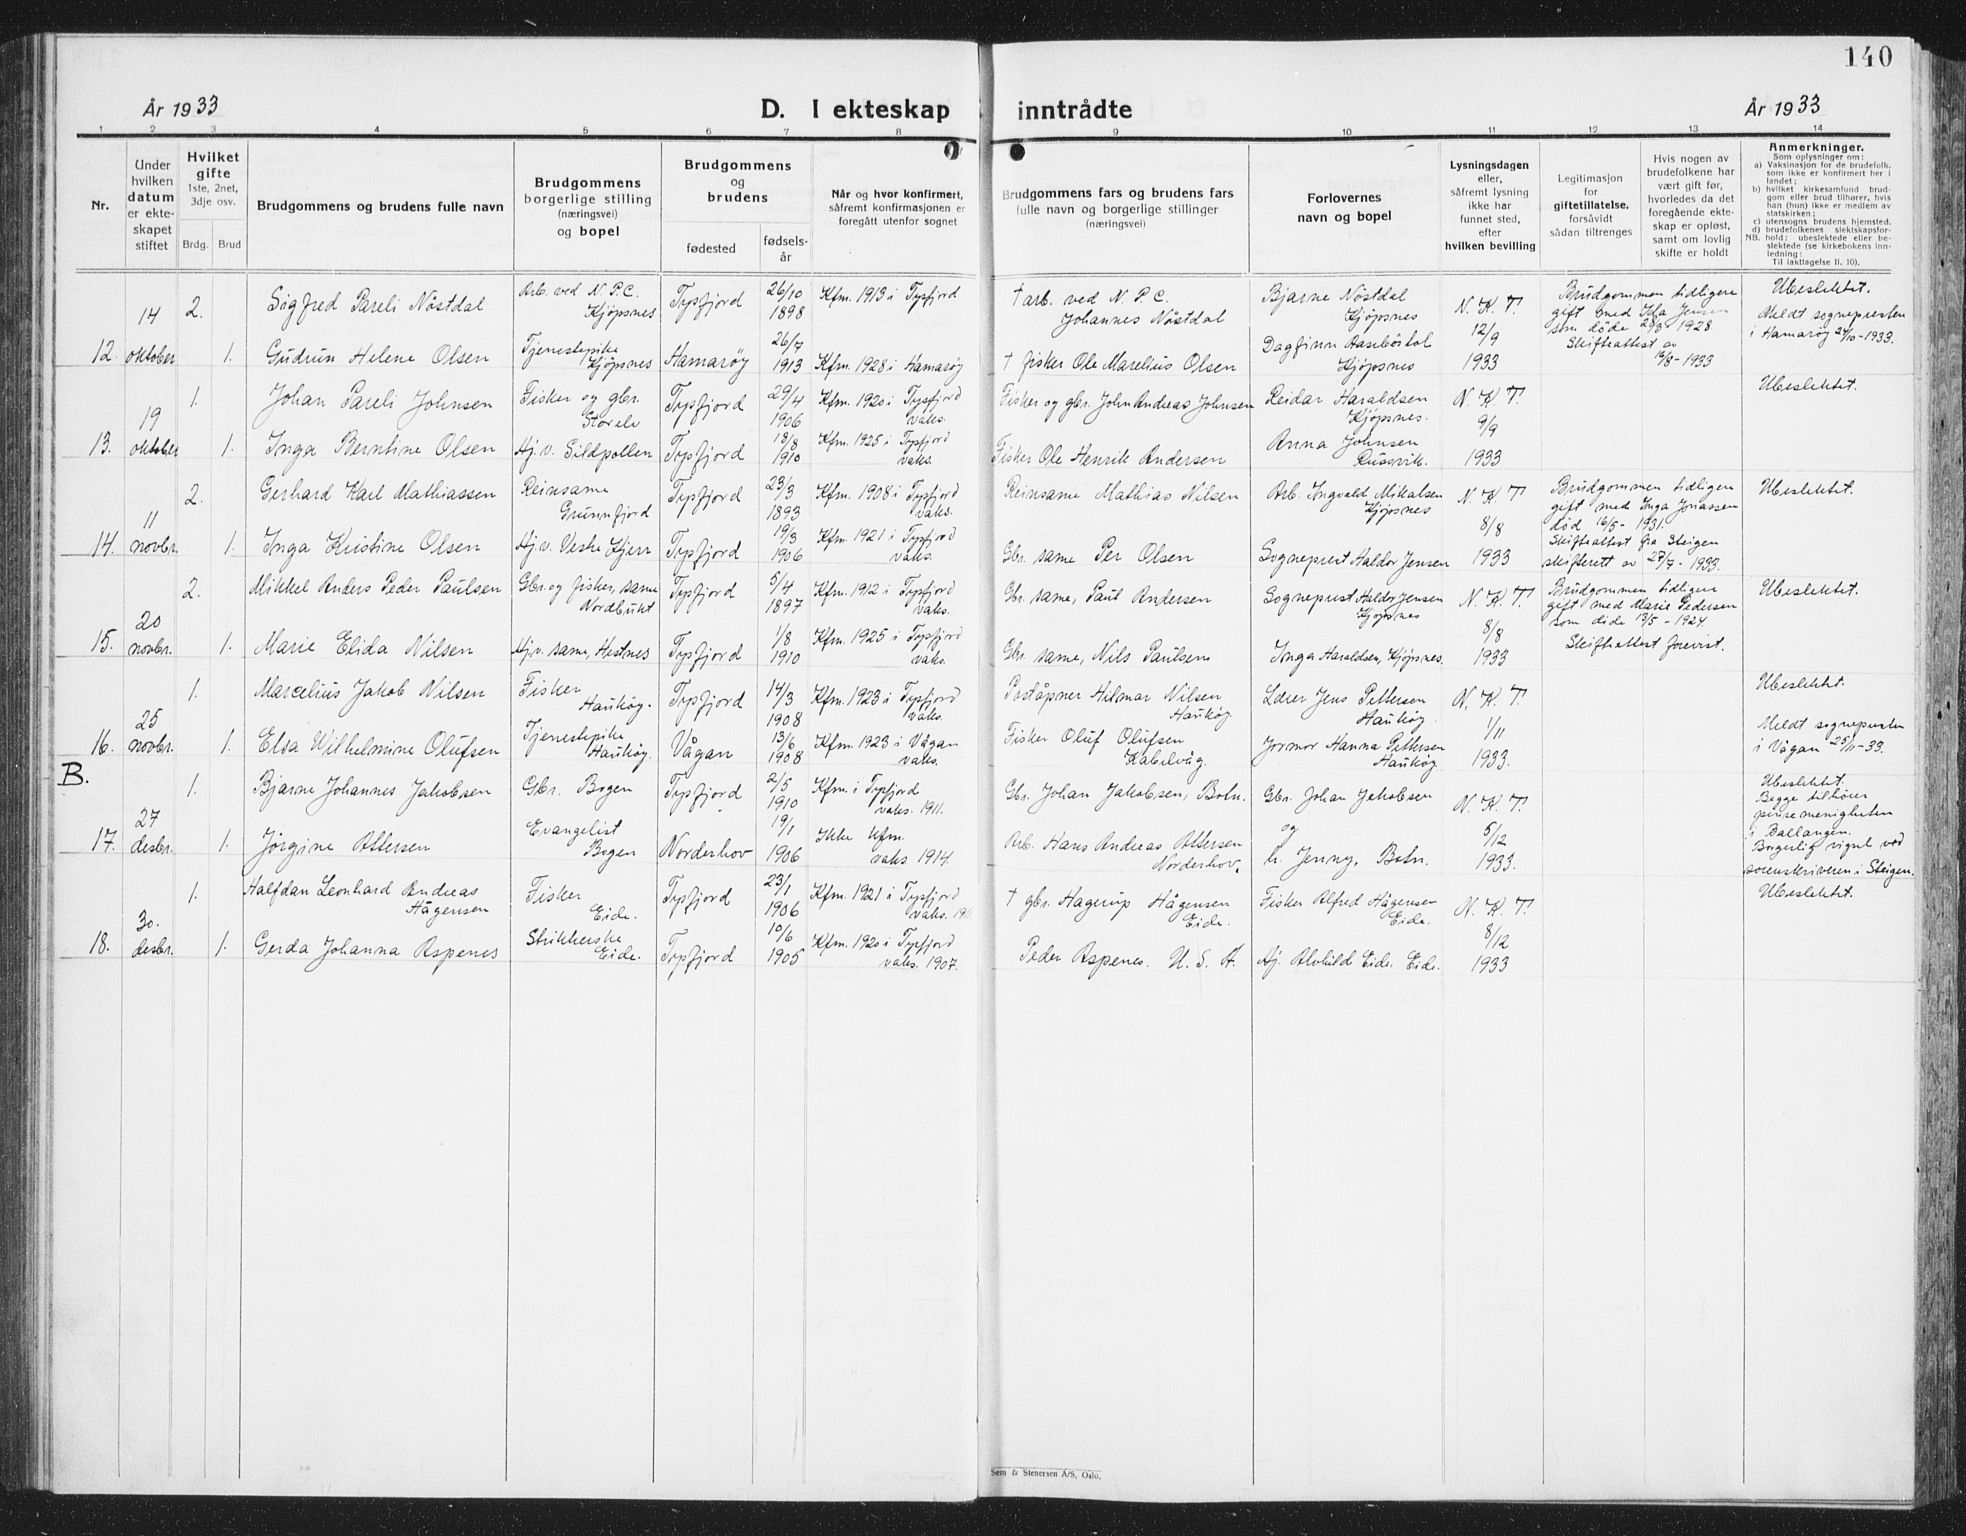 140
År 1933
D. I ekteskap inntrådte
År 1933
1 2 3 4 5 6 7 8 9 10 11 12 13 14
Nr.
Under
hvilken
datum
er ekte-
skapet
stiftet
Hvilket
gifte
1ste, 2net,
3dje osv.
Brdg. Brud
Brudgommens og brudens fulle navn
Brudgommens
borgerlige stilling
(næringsvei)
og bopel
Brudgommens
og
brudens
fødested
fødsels-
år
Når og hvor konfirmert,
såfremt konfirmasjonen er
foregått utenfor sognet
Brudgommens fars og brudens fars
fulle navn og borgerlige stillinger
(næringsvei)
Forlovernes
navn og bopel
Lysningsdagen
eller,
såfremt lysning
ikke har
funnet sted,
efter
hvilken bevilling
Legitimasjon
for
giftetillatelse,
forsåvidt
sådan tiltrenges
Hvis nogen av
brudefolkene har
vært gift før,
hvorledes da det
foregående ekte-
skap er opløst,
samt om lovlig
skifte er holdt
Anmerkninger.
Som oplysninger om:
a) Vaksinasjon for de brudefolk,
som ikke er konfirmert her i
landet;
b) hvilket kirkesamfund brud-
gom eller brud tilhører, hvis
han (hun) ikke er medlem av
statskirken;
c) utensogns brudens hjemsted.
d) brudefolkenes slektskapsfor-
NB. hold: ubeslektede eller be-
slektede (se kirkebokens inn-
ledning:
Til iakttagelse II. 10).
12.
14
oktober
2.
1.
Sigfred Pareli Nöstdal
Gudrun Helene Olsen
Arb. ved N.P.C.
Kjöpsnes
Tjenestepike
Kjöpsnes
Tysfjord
Hamaröy
26/10
1898
26/7
1913
Kfm. 1913 i Tysfjord
Kfm. 1928 i Hamaröy
† arb. ved N.P.C.
Johannes Nöstdal
† fisker Ole Marelius Olsen
Bjarne Nöstdal
Kjöpsnes
Dagfinn Aaseböstal
Kjöpsnes
N. K. T.
12/9
1933
Brudgommen tidligere
gift med Ida Jensen
som döde 28/3 - 1928.
Skifteattest av
16/8 - 1933
Ubeslektet.
Meldt sognepresten
i Hamaröy 24/10-1933.
13.
19
oktober
1.
1.
Johan Pareli Johnsen
Inga Berntine Olsen
Fisker og gbr.
Storele
Hj. v. Sildpollen
Tysfjord
Tysfjord
29/4
1906
18/8
1910
Kfm. 1920 i Tysfjord
vaks.
Kfm. 1925 i Tysfjord
vaks.
Fisker og gbr. John Andreas Johnsen
Fisker Ole Henrik Andersen
Reidar Haraldsen
Kjöpsnes.
Anna Johnsen
Russvik.
N. K. T.
9/9
1933
Ubeslektet.
14.
11
novbr.
2.
1.
Gerhard Karl Mathiassen
Inga Kristine Olsen
Reinsame
Grunnfjord
Hj. v. Veske Kjerr
Tysfjord
Tysfjord
23/3
1893
19/3
1906
Kfm. 1908 i Tysfjord
vaks.
Kfm. 1921 i Tysfjord
vaks.
Reinsame Mathias Nilsen
Gbr. same Per Olsen
Arb. Ingvald Mikalsen
Kjöpsnes
Sogneprest Haldor Jensen
N. K. T.
8/8
1933
Brudgommen tidligere
gift med Inga Jonassen
död 16/5 - 1931.
Skifteattest fra Steigen
skifterett av 27/7 - 1933.
Ubeslektet.
15.
20
novbr.
2.
1.
Mikkel Anders Peder Paulsen
Marie Elida Nilsen
Gbr. og fisker, same
Nordbukt
Hj. v. same, Hestnes
Tysfjord
Tysfjord
5/4
1897
1/8
1910
Kfm. 1912 i Tysfjord
vaks.
Kfm. 1925 i Tysfjord
vaks.
Gbr. same, Paul Andersen
Gbr. same, Nils Paulsen
Sogneprest Haldor Jensen
Kjöpsnes
Inga Haraldsen, Kjöpsnes.
N. K. T.
8/8
1933
Brudgommen tidligere
gift med Marie Pedersen
som döde 13/5 - 1924.
Skifteattest forevist.
Ubeslektet.
16.
25
novbr.
1.
1.
Marcelius Jakob Nilsen
Elsa Wilhelmine Olufsen
Fisker
Hauköy.
Tjenestepike
Hauköy.
Tysfjord
Vågan
14/3
1908
13/6
1908
Kfm. 1923 i Tysfjord
vaks.
Kfm. 1923 i Vågan
vaks.
Poståpner Hilmar Nilsen
Hauköy.
Fisker Oluf Olufsen
Kabelvåg.
Lærer Jens Pettersen
Hauköy.
Jormor Hanna Pettersen
Hauköy
N. K. T.
1/11
1933.
Ubeslektet.
Meldt sognepresten
i Vågan 25/11-33.
B.
17.
27
desbr.
1.
1.
Bjarne Johannes Jakobsen
Jörgine Attersen
Gbr. Bogen
Evangelist
Bogen
Tysfjord
Norderhov
2/5
1910
19/1
1906
Kfm. i Tysfjord
vaks. 1911.
Ikke kfm.
vaks. 1914.
Gbr. Johan Jakobsen, Botn.
Arb. Hans Andreas Attersen
Norderhov.
Gbr. Johan Jakobsen
og
h. Jenny, Botn.
N. K. T.
5/12
1933.
Ubeslektet.
Begge tilhörer
pinsemenigheten
i Ballangen.
Borgerlig vigsel ved
sorenskriveren i Steigen.
18.
30.
desbr.
1.
1.
Halfdan Leonhard Andreas
Hågensen
Gerda Johanna Aspenes
Fisker
Eide.
Strikkerske
Eide.
Tysfjord
Tysfjord
23/1
1906
10/6
1905
Kfm. 1921 i Tysfjord
vaks. 191
Kfm. 1920 i Tysfjord
vaks. 1907.
† gbr. Hagerup Hågensen
Eide.
Peder Aspenes. U. S. A.
Fisker Alfred Hågensen
Eide.
Hj. Alvhild Eide, Eide.
N. K. T.
8/12
1933
Ubeslektet.
Sem & Stenersen A/S, Oslo.